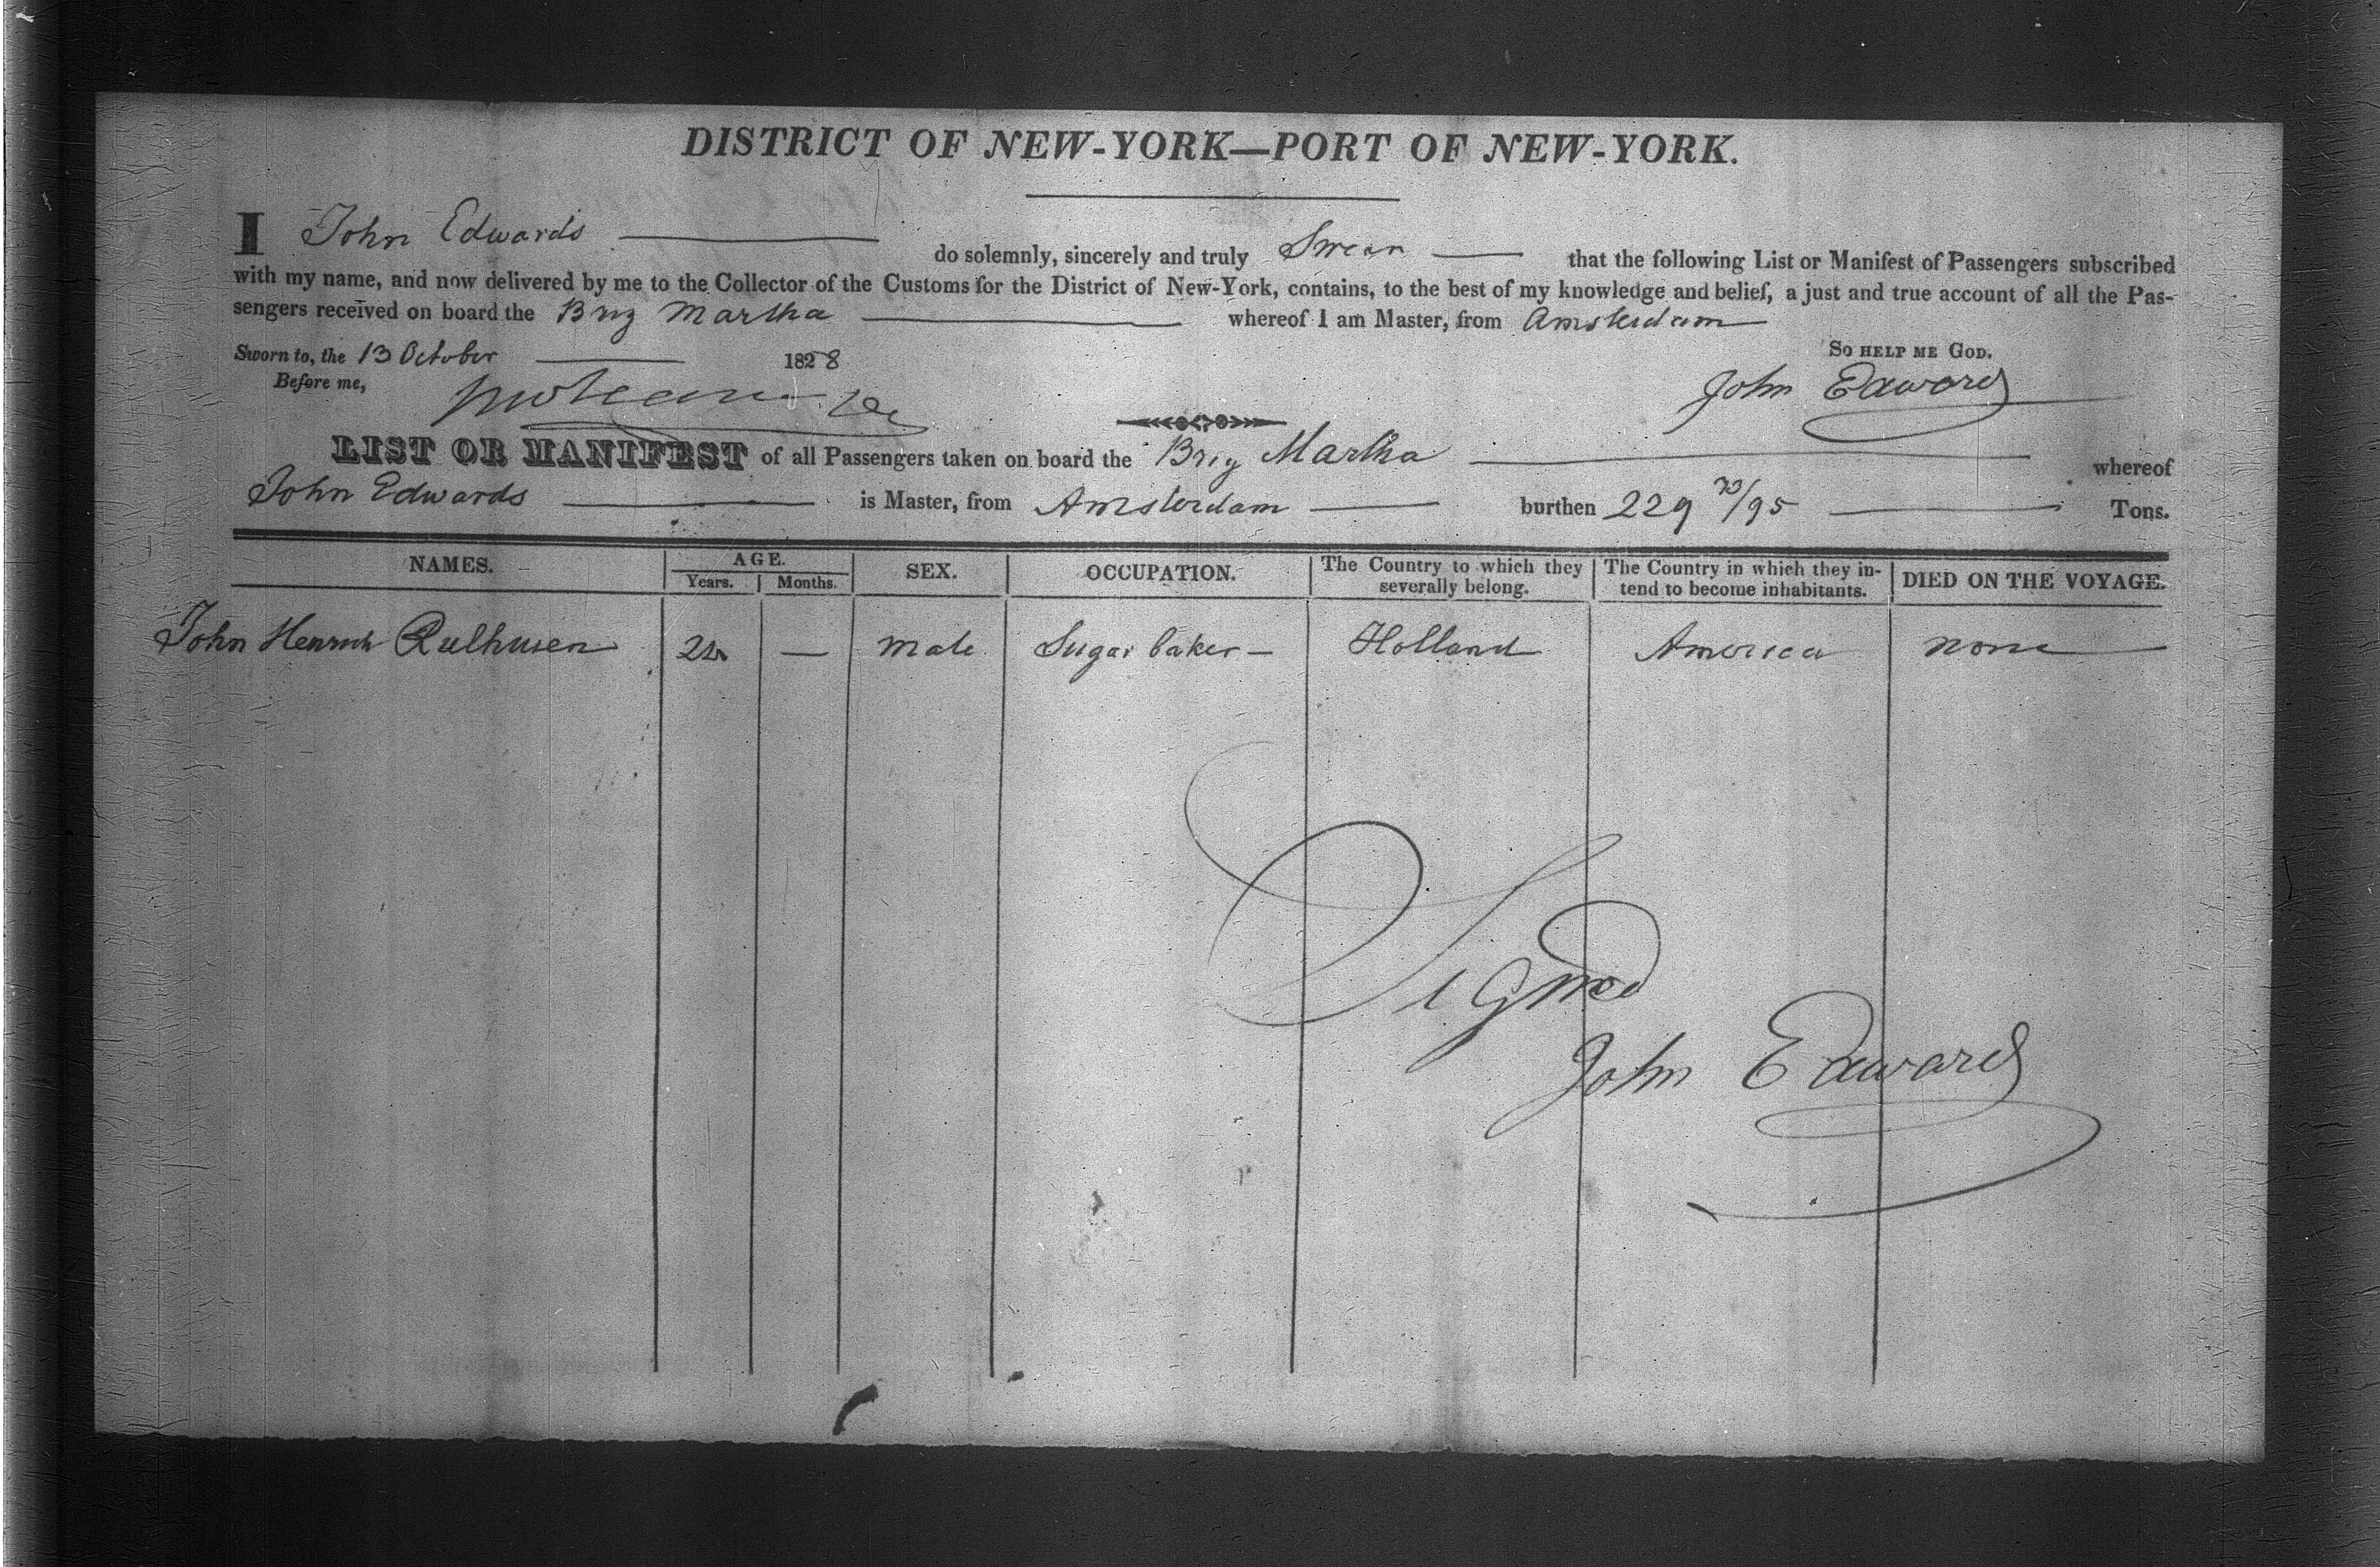 DISTRICT OF NEW-YORK—PORT OF NEW-YORK.
I John Edwards do solemnly, sincerely and truly Swear that the following List or Manifest of Passengers subscribed
with my name, and now delivered by me to the Collector of the Customs for the District of New-York, contains, to the best of my knowledge and belief, a just and true account of all the Pas-
sengers received on board the Brig Martha whereof I am Master, from Amsterdam
So HELP ME GOD.
Sworn to, the 13 October 1828
Before me,
John Edwards
LIST OR MANIFEST of all Passengers taken on board the Brig Martha whereof
John Edwards is Master, from Amsterdam burthen 229 /95 Tons.
NAMES. AGE. Years. Months. SEX. OCCUPATION. The Country to which they severally belong. The Country in which they in- tend to become inhabitants. DIED ON THE VOYAGE.
John Henrich 24 — male Sugar baker — Holland America none
Signed
John Edwards